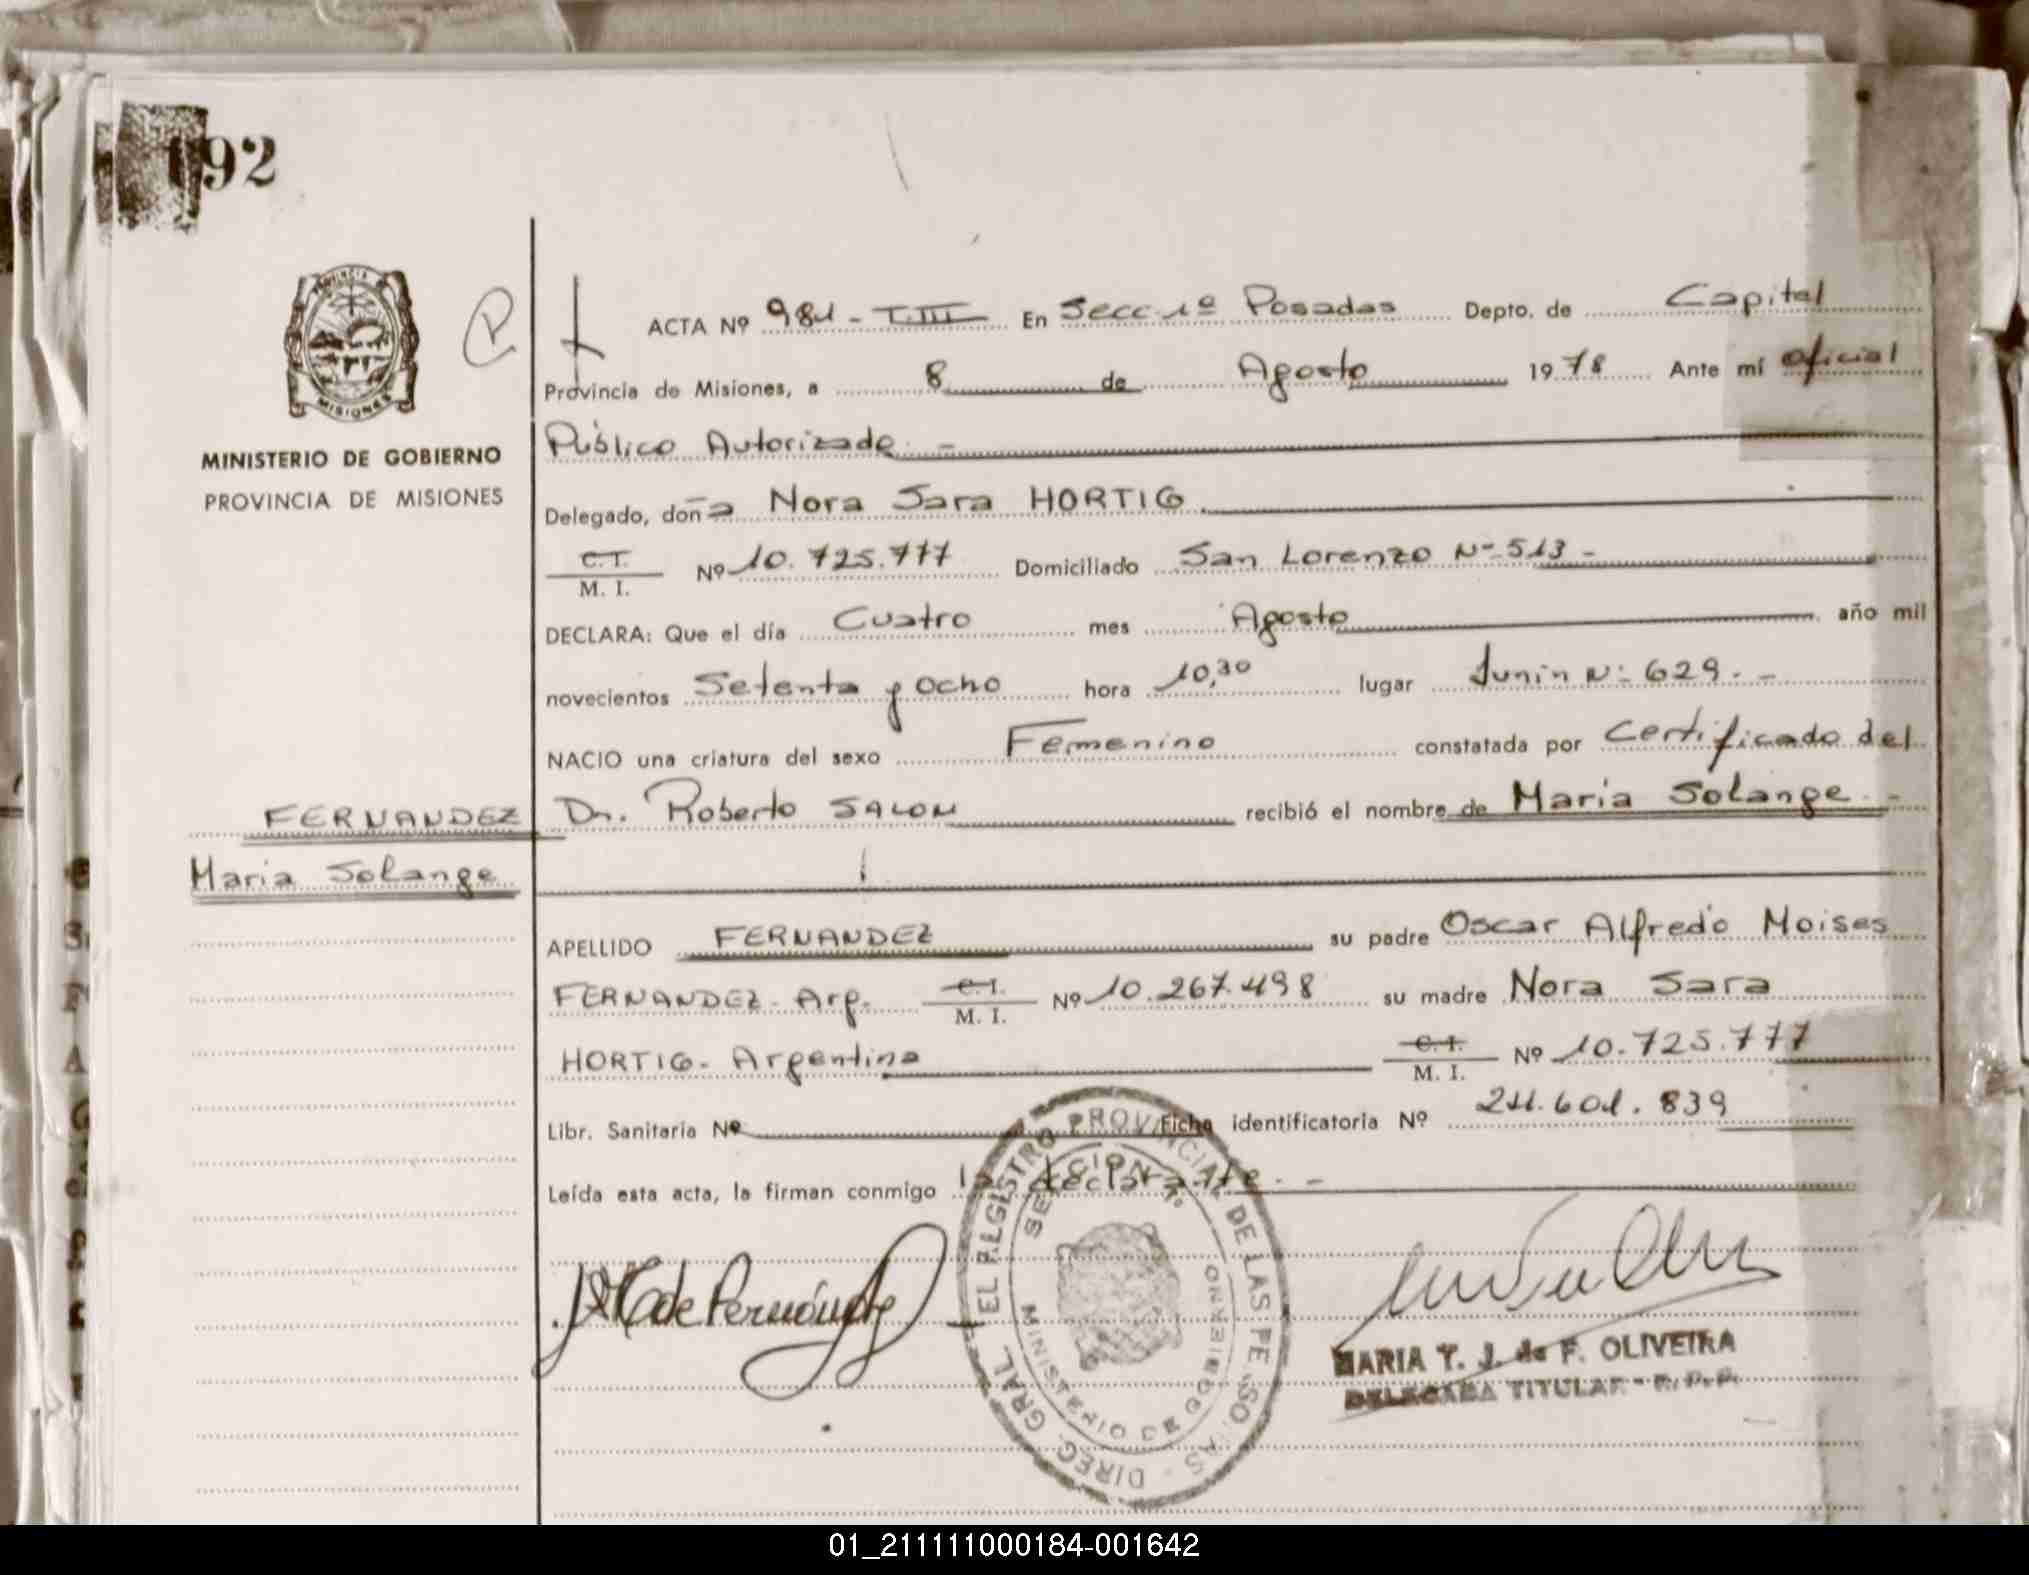 192
PROVINCIA DE MISIONES
MINISTERIO DE GOBIERNO
PROVINCIA DE MISIONES
ACTA Nº 981 - T.III En Secc 1º Posadas Depto. de Capital
Provincia de Misiones, a 8 de Agosto 1978 Ante mí Oficial
Público Autorizado. -
Delegado, doña Nora Sara HORTIG
C.I.
M. I. Nº 10.725.777 Domiciliado San Lorenzo Nº 513 -
DECLARA: Que el día Cuatro mes Agosto año mil
novecientos Setenta y Ocho hora 10,30 lugar Junin Nº 629. -
NACIO una criatura del sexo Femenino constatada por Certificado del
FERNANDEZ Dr. Roberto SALOM recibió el nombre de Maria Solange. -
Maria Solange
APELLIDO FERNANDEZ su padre Oscar Alfredo Moises
FERNANDEZ - Arg. C.I. M. I. Nº 10.267.498 su madre Nora Sara
HORTIG - Argentina C.I. M. I. Nº 10.725.777
Libr. Sanitaria Nº Ficha identificatoria Nº 211.601.839
Leída esta acta, la firman conmigo la declarante. -
de Fernández
DIREC. GRAL. DEL REGISTRO PROVINCIAL DE LAS PERSONAS
SECCION 1º
MINISTERIO DE GOBIERNO
MARIA T. J. de F. OLIVEIRA
DELEGADA TITULAR - R. P. P.
01_211111000184-001642